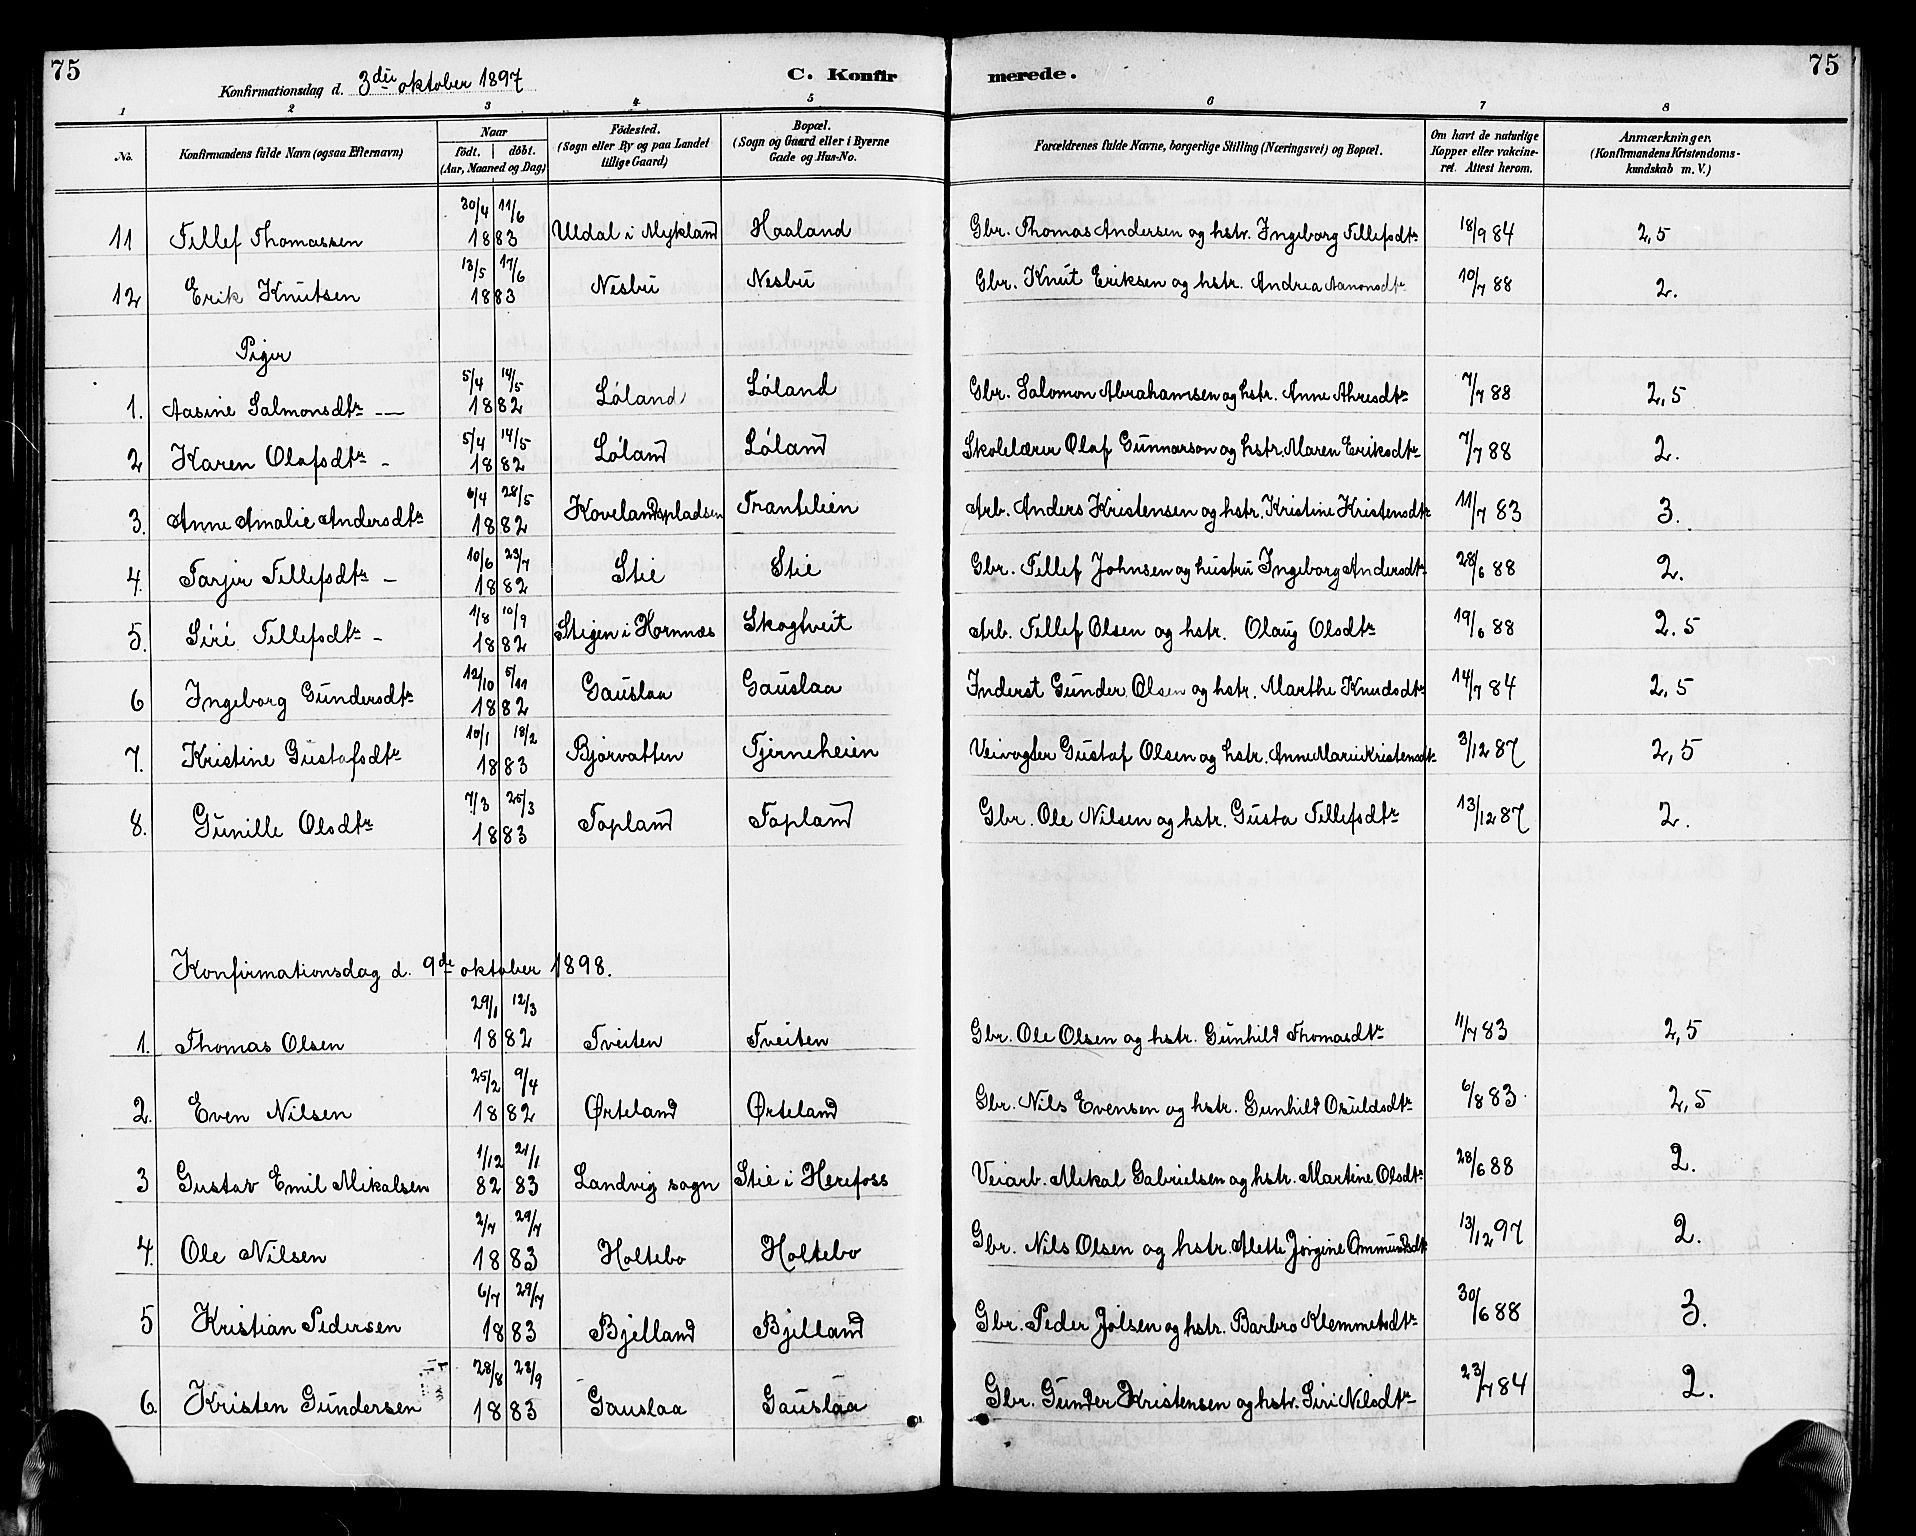 75 C. Konfirmerede. 75
Konfirmationsdag d. 3die oktober 1897
1 2 3 4 5 6 7 8
No. Konfirmandens fulde Navn (ogsaa Efternavn) Naar födt. döbt. (Aar, Maaned og Dag) Födested. (Sogn eller By og paa Landet tillige Gaard) Bopæl. (Sogn og Gaard eller i Byerne Gade og Hus-No. Forældrenes fulde Navne, borgerlige Stilling (Næringsvei) og Bopæl. Om havt de naturlige Kopper eller vakcineret. Attest herom. Anmærkninger. (Konfirmandens Kristendomskundskab m. V.)
11 Tellef Thomassen 30/4 11/6 1883 Uldal i Mykland Haaland Gbr. Thomas Andersen og hstr. Ingeborg Tellefsdtr 18/9 84 2,5
12 Erik Knutsen 13/5 17/6 1883 Nesbu Nesbu Gbr. Knut Eriksen og hstr. Andrea Aanonsdtr 10/7 88 2.
Piger
1. Aasine Salmonsdtr 5/4 14/5 1882 Løland Løland Gbr. Salomon Abrahamsen og hstr. Anne Ahresdtr 7/7 88 2,5
2 Karen Olafsdtr - 5/4 14/5 1882 Løland Løland Skolelærer Olaf Gunnarson og hstr. Maren Eriksdtr 7/7 88 2.
3. Anne Amalie Andersdtr 6/4 28/5 1882 Kovelandspladsen Tranteleien Arb. Anders Kristensen og hstr. Kristine Kristensdtr 11/7 83 3.
4. Tarjer Tellefsdtr - 10/6 23/7 1882 Stie Stie Gbr. Tellef Johnsen og hustru Ingeborg Andersdtr 28/6 88 2.
5. Siri Tellefsdtr - 1/8 10/9 1882 Steigen i Hornnæs Skogtveit Arb. Tellef Olsen og hstr. Olaug Olsdtr 19/6 88 2.5
6 Ingeborg Gundersdtr 12/10 5/11 1882 Gauslaa Gauslaa Inderst Gunder Olsen og hstr. Marthe Knudsdtr 14/7 84 2,5
7. Kristine Gustafsdtr 10/1 18/2 1883 Bjorvatten Tjerneheien Veivogter Gustaf Olsen og hstr. Anne Marie Kristensdtr 3/12 87 2,5
8. Gunille Olsdtr 7/3 25/3 1883 Topland Topland Gbr. Ole Nilsen og hstr. Gusta Tellefsdtr 13/12 87 2.
Konfirmationsdag d. 9de oktober 1898.
1. Thomas Olsen 29/1 12/3 1882 Tveiten Tveiten Gbr. Ole Olsen og hstr. Gunhild Thomasdtr 11/7 83 2,5
2. Even Nilsen 25/2 9/4 1882 Ørteland Ørteland Gbr. Nils Evensen og hstr. Gunhild Osuldsdtr 6/8 83 2,5
3 Gustav Emil Mikalsen 1/12 82 21/1 83 Landvig sogn Stie i Herefoss Veiarb. Mikal Gabrielsen og hstr. Martine Olsdtr 28/6 88 2.
4. Ole Nilsen 2/7 29/7 1883 Holtebo Holtebo Gbr. Nils Olsen og hstr. Alette Jørgine Ommundsdtr 13/12 97 2.
5 Kristian Pedersen 6/7 29/7 1883 Bjelland Bjelland Gbr. Peder Jølsen og hstr. Barbro Klemmetsdtr 30/6 88 3.
6. Kristen Gundersen 28/8 23/9 1883 Gauslaa Gauslaa Gbr. Gunder Kristensen og hstr. Siri Nilsdtr 23/7 84 2.